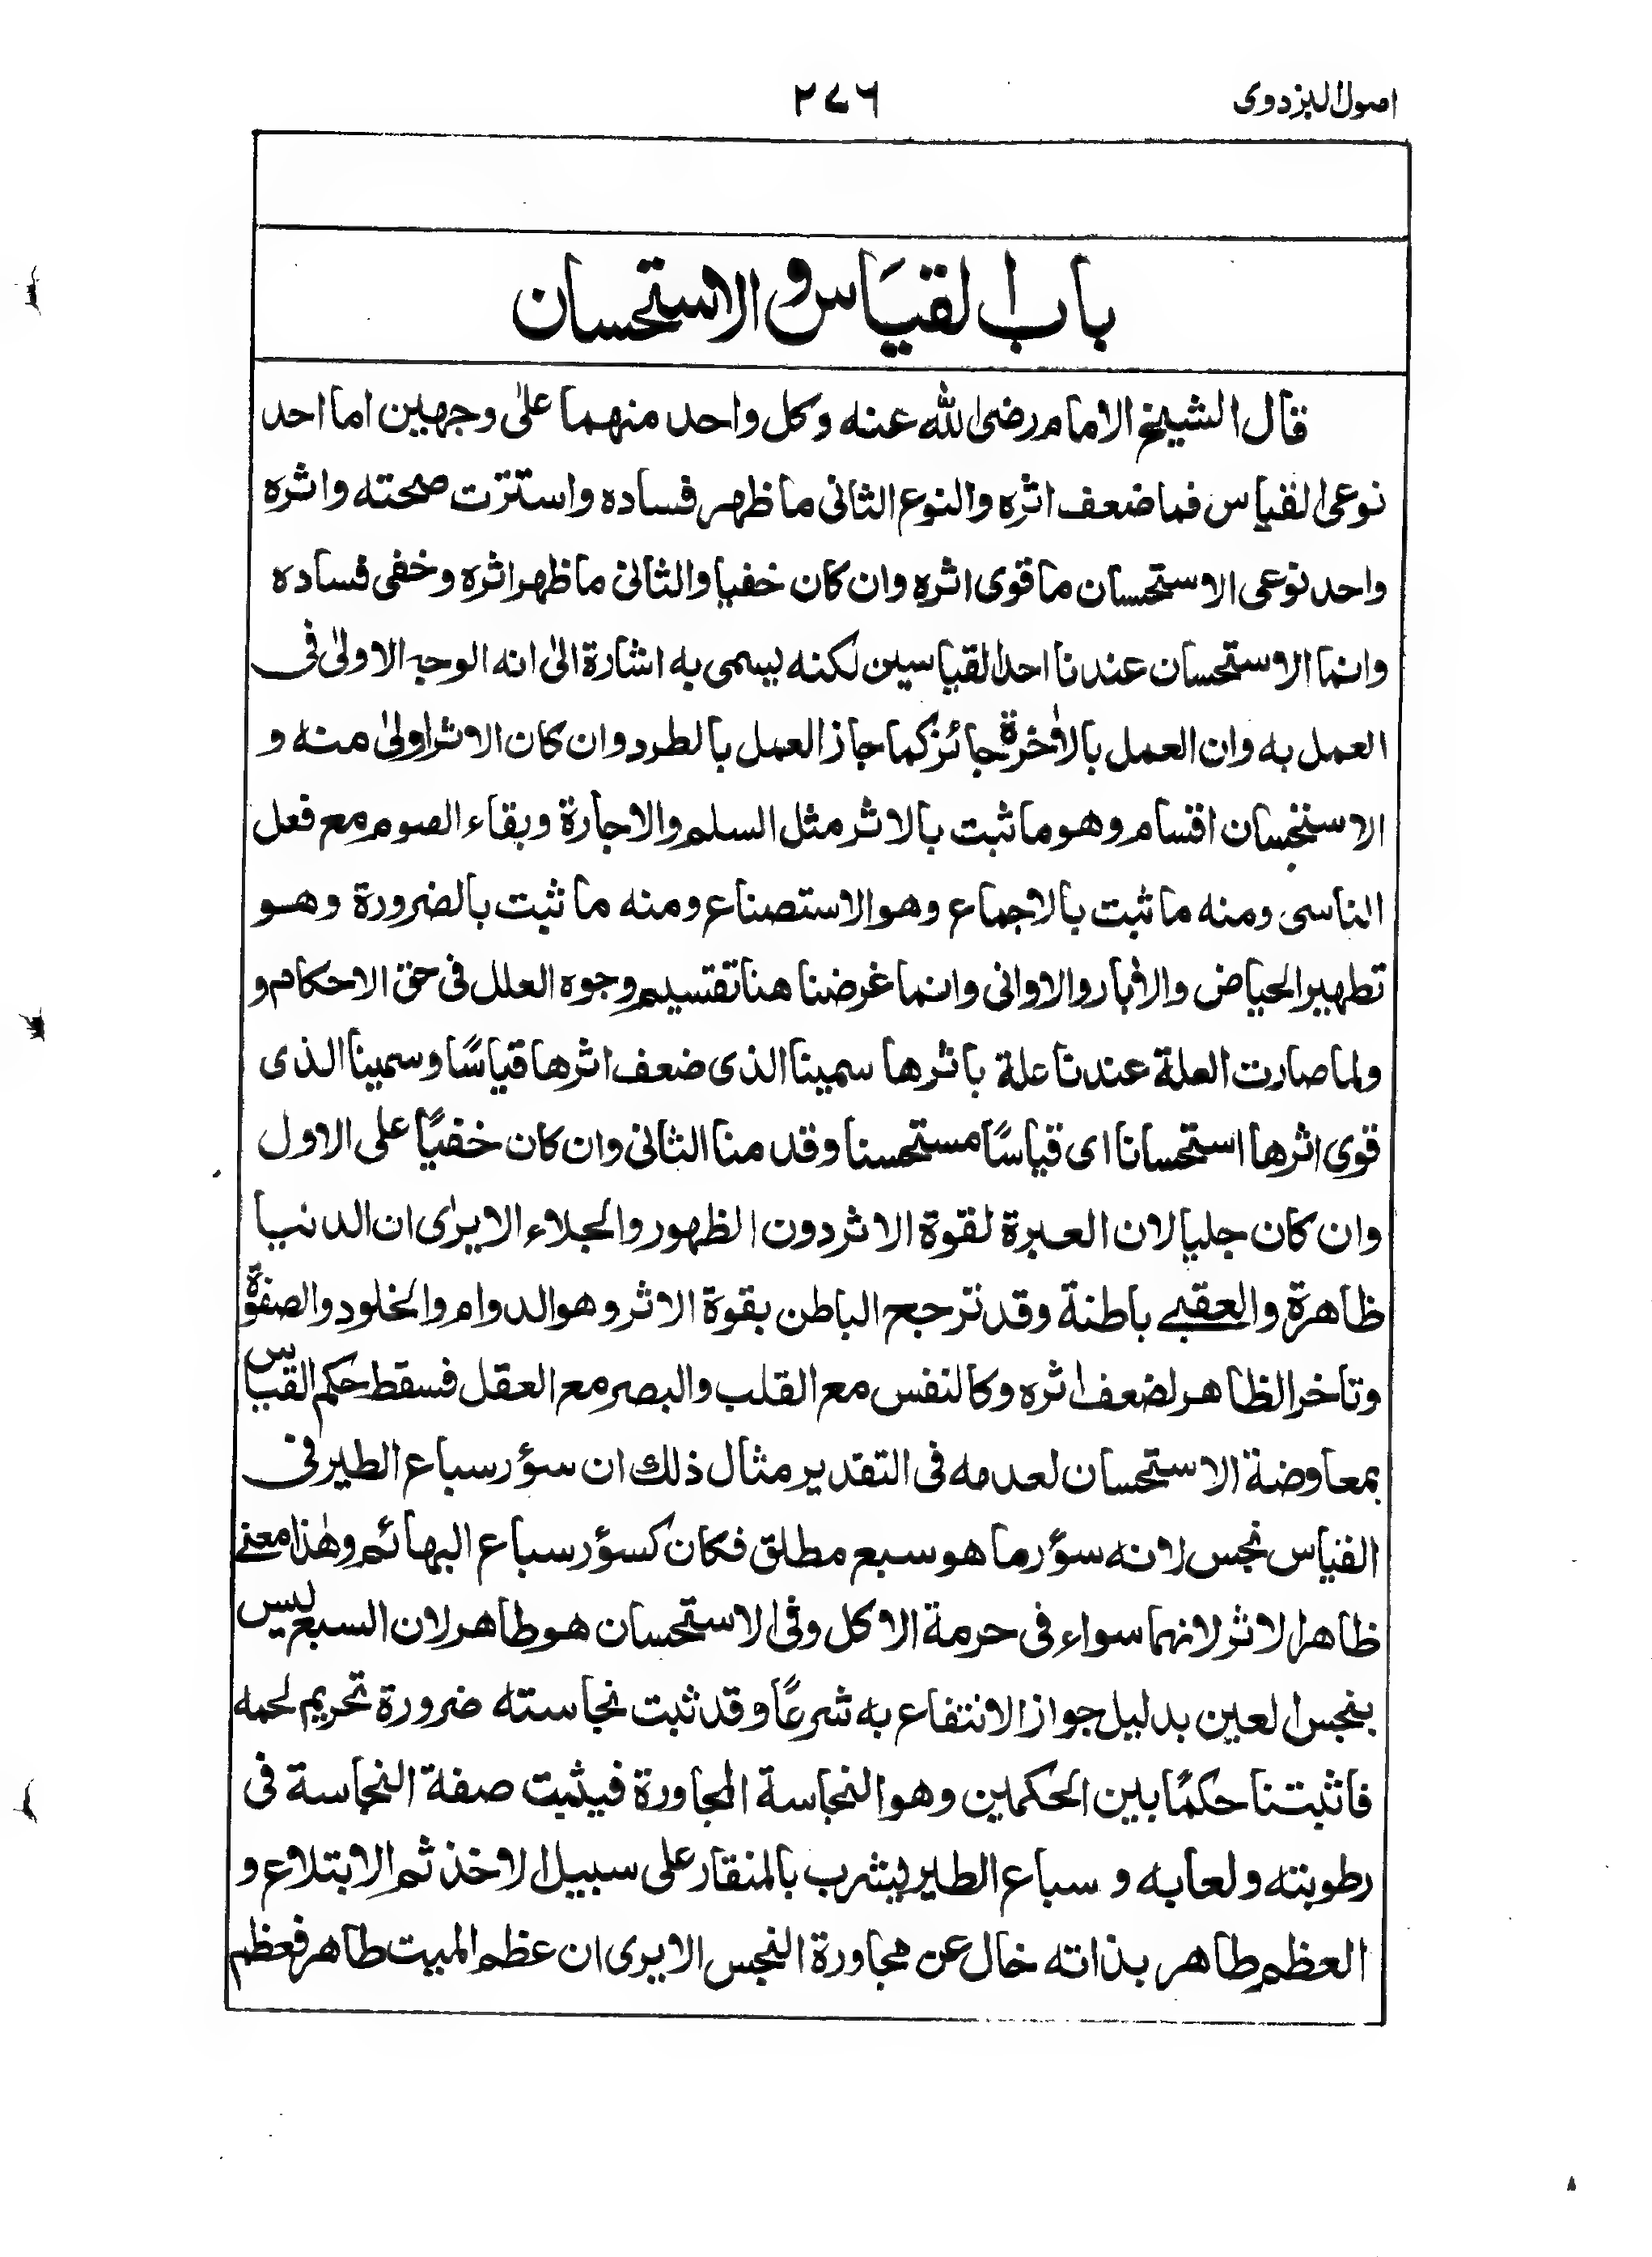 اصول البزدوى
٢٧٦
باب القياس والاستحسان
قال الشيخ الامام رضى الله عنه وكل واحد منهما على وجهين اما احد
نوعى القياس فما ضعف اثره والنوع الثانى ما ظهر فساده واستترت صحته واثره
واحد نوعى الاستحسان ما قوى اثره وان كان خفيا والثانى ما ظهر اثره وخفى فساده
وانما الاستحسان عندنا احد القياسين لكنه يسمى به اشارة الى انه الوجه الاولى فى
العمل به وان العمل بالاٰخرة جائز كما جاز العمل بالطرد وان كان الاثر اولى منه و
الاستحسان اقسام وهو ما ثبت بالاثر مثل السلم والاجارة وبقاء الصوم مع فعل
الناسى ومنه ما ثبت بالاجماع وهو الاستصناع ومنه ما ثبت بالضرورة وهو
تطهير الحياض والاٰبار والاوانى وانما غرضنا هنا تقسيم وجوه العلل فى حق الاحكام و
ولما صارت العلة عندنا علة باثرها سمينا الذى ضعف اثرها قياسًا وسمينا الذى
قوى اثرها استحسانا اى قياسًا مستحسنا وقدمنا الثانى وان كان خفيًا على الاول
وان كان جليا لان العبرة لقوة الاثر دون الظهور والجلاء الا يرى ان الدنيا
ظاهرة والعقبے باطنة وقد ترجح الباطن بقوة الاثر وهو الدوام والخلود والصفوة
وتاخر الظاهر لضعف اثره وكالنفس مع القلب والبصر مع العقل فسقط حكم القياس
بمعاوضة الاستحسان لعدمه فى التقدير مثال ذلك ان سؤر سباع الطير فى
القياس نجس لانه سؤر ما هو سبع مطلق فكان كسؤر سباع البهائم وهٰذا معنے
ظاهر الاثر لانهما سواء فى حرمة الاكل وفى الاستحسان هو طاهر لان السبع ليس
بنجس العين بدليل جواز الانتفاع به شرعًا وقد ثبت نجاسته ضرورة تحريم لحمه
فاثبتنا حكمًا بين الحكمين وهو النجاسة المجاورة فيثبت صفة النجاسة فى
رطوبته ولعابه و سباع الطير يشرب بالمنقار على سبيل الاخذ ثم الابتلاع و
العظم طاهر بذاته خال عن مجاورة النجس الا يرى ان عظم الميت طاهر فعظم